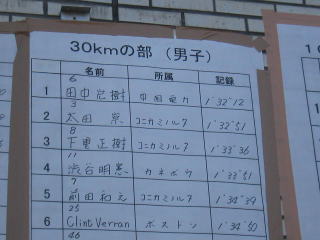 30kmの部 (男子)
名前 所属 記録
6
1 田中宏樹 中国電力 1°32'12
3
2 太田崇 コニカミノルタ 1°32'51
8
3 下重正樹 コニカミノルタ 1°33'36
11
4 渋谷明憲 カネボウ 1°33'51
7
5 前田和之 コニカミノルタ 1°34'39
25
6 Clint Verran ボストン 1°34'50
46
10